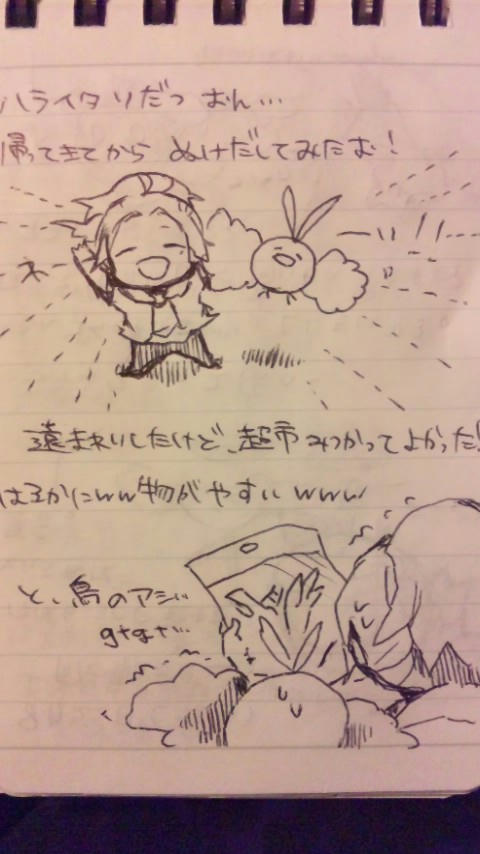 ハライタリだつ おん…
帰ってきてから ぬけだしてみたお!
ネーい!!
遠まわりしたけど、超市みつかってよかった!
はるかにww物がやすいwww
と、鳥のアシ…
gtgt…